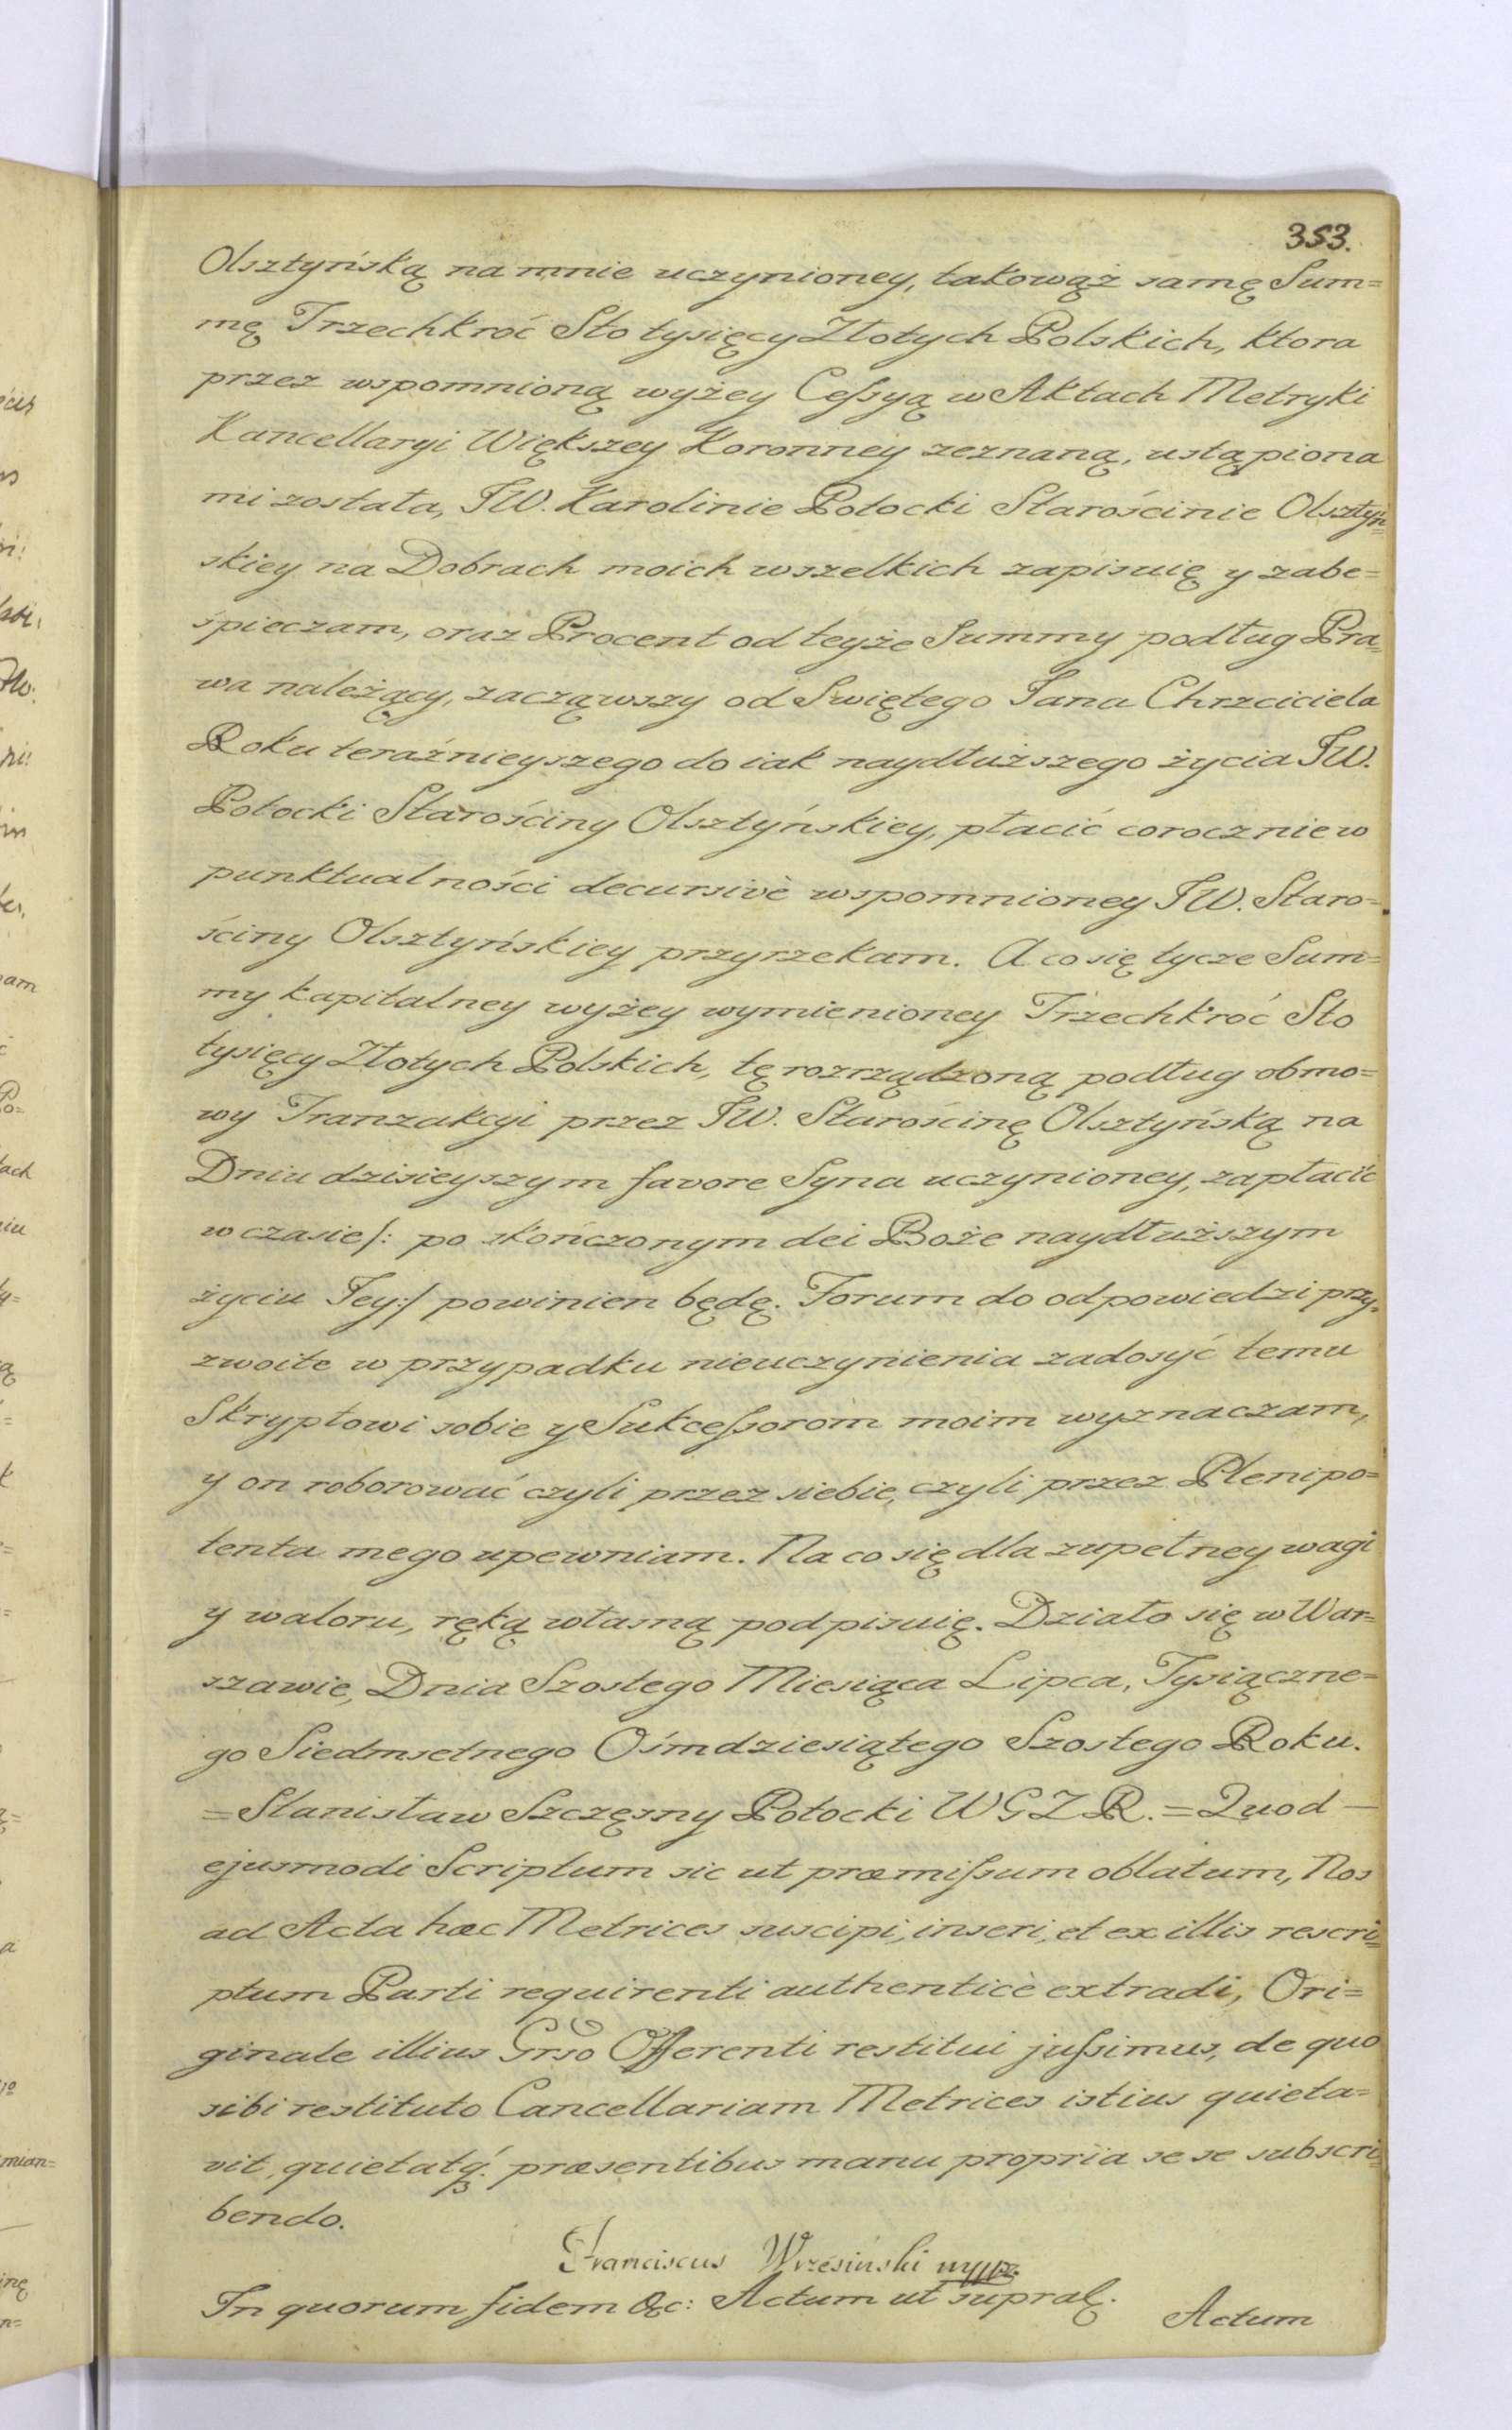 353.
Olsztyńską na mnie uczynioney, takowąż samę Sum=
mę Trzechkroć Sto tysięcy Złotych Polskich, ktora
przez wspomnioną wyżey Ceſsyą w Aktach Metryki
Kancellaryi Większey Koronney zeznaną, ustąpiona
mi została, JW. Karolinie Potocki Starościnie Olsztyń=
skiey na Dobrach moich wszelkich zapisuię y zabe=
śpieczam, oraz Procent od teyże Summy podług Pra=
wa należący, zacząwszy od Swiętego Jana Chrzciciela
Roku teraźnieyszego do iak naydłuższego życia JW.
Potocki Starościny Olsztyńskiey, płacić corocznie w
punktualności decursivè wspomnioney JW. Staro=
ściny Olsztyńskiey przyrzekam. A co się tycze Sum=
my kapitalney wyżey wymienioney Trzechkroć Sto
tysięcy Złotych Polskich, tę rozrządzoną podług obmo=
wy Tranzakcyi przez JW. Starościnę Olsztyńską na
Dniu dzisieyszym favore Syna uczynioney, zapłacić
w czasie /: po skończonym dei Boże naydłuższym
życiu Jey:/ powinien będę. Forum do odpowiedzi przy=
zwoite w przypadku nieuczynienia zadosyć temu
Skryptowi sobie y Sukceſsorom moim wyznaczam,
y on roborować czyli przez siebie, czyli przez Plenipo=
tenta mego upewniam. Na co się dla zupełney wagi
y waloru, ręką własną podpisuię. Działo się w War=
szawie, Dnia Szostego Miesiąca Lipca, Tysiączne=
go Siedmsetnego Ośmdziesiątego Szostego Roku.
= Stanisław Szczęsny Potocki W G Z R. = Quod —
ejusmodi Scriptum sic ut præmiſsum oblatum, Nos
ad Acta hæc Metrices suscipi, inseri, et ex illis rescri=
ptum Parti requirenti authenticè extradi, Ori=
ginale illius Grso Offerenti restitui juſsimus, de quo
sibi restituto Cancellariam Metrices istius quieta=
vit, quietatq́. præsentibus manu propria se se subscri=
bendo.
Franciscus Wrzesiński mppr.
In quorum fidem &c: Actum ut supra.
Actum